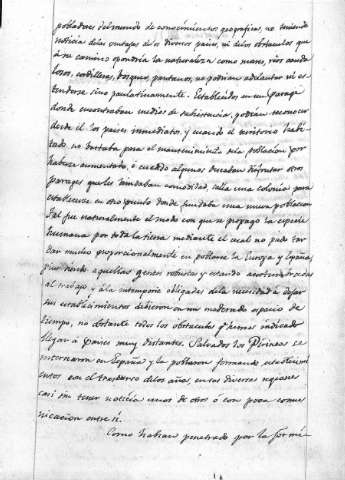 pobladores del mundo de conocimientos geograficos, no teniendo
noticia de las ventajas de los diversos paises, ni de los obstaculos que
á su camino opondria la naturaleza como mares, rios cauda
losos, cordilleras, bosques, pantanos, no podrian adelantar ni es
tenderse sino paulatinamente. Establecidos en un parage
donde encontraban medios de subsistencia, podrian reconocer
desde el los paises inmediatos, y cuando el territorio habi-
tado, no bastaba para el mantenimiento de la poblacion por
haberse aumentado, ó cuando algunos deseaban disfrutar otros
parages que les brindaban comodidad, salia una colonia para
establecerse en otro punto donde fundaba una nueva poblacion.
Tal fue naturalmente el modo con que se propagó la especie
humana por toda la tierra mediante el cual no pudo tar
dar mucho proporcionalmente en poblarse la Europa y España,
pues siendo aquellas gentes robustas y estando acostumbradas
al trabajo y á la intemperie obligadas de la necesidad á dejar
sus establecimientos debieron en un moderado espacio de
tiempo, no obstante todos los obstaculos q.e hemos indicado
llegar á paises muy distantes. Salvados los Pirineos se
internaron en España y la poblaron formando establecimi
entos con el trascurso de los años, en sus diversas regiones
casi sin tener noticia unos de otros ó con poca comu
nicacion entre si.
Como habian penetrado por la